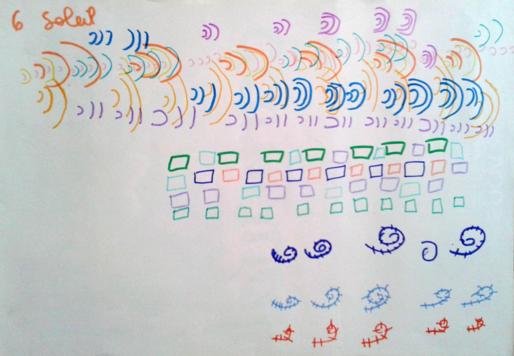 6 Soleil